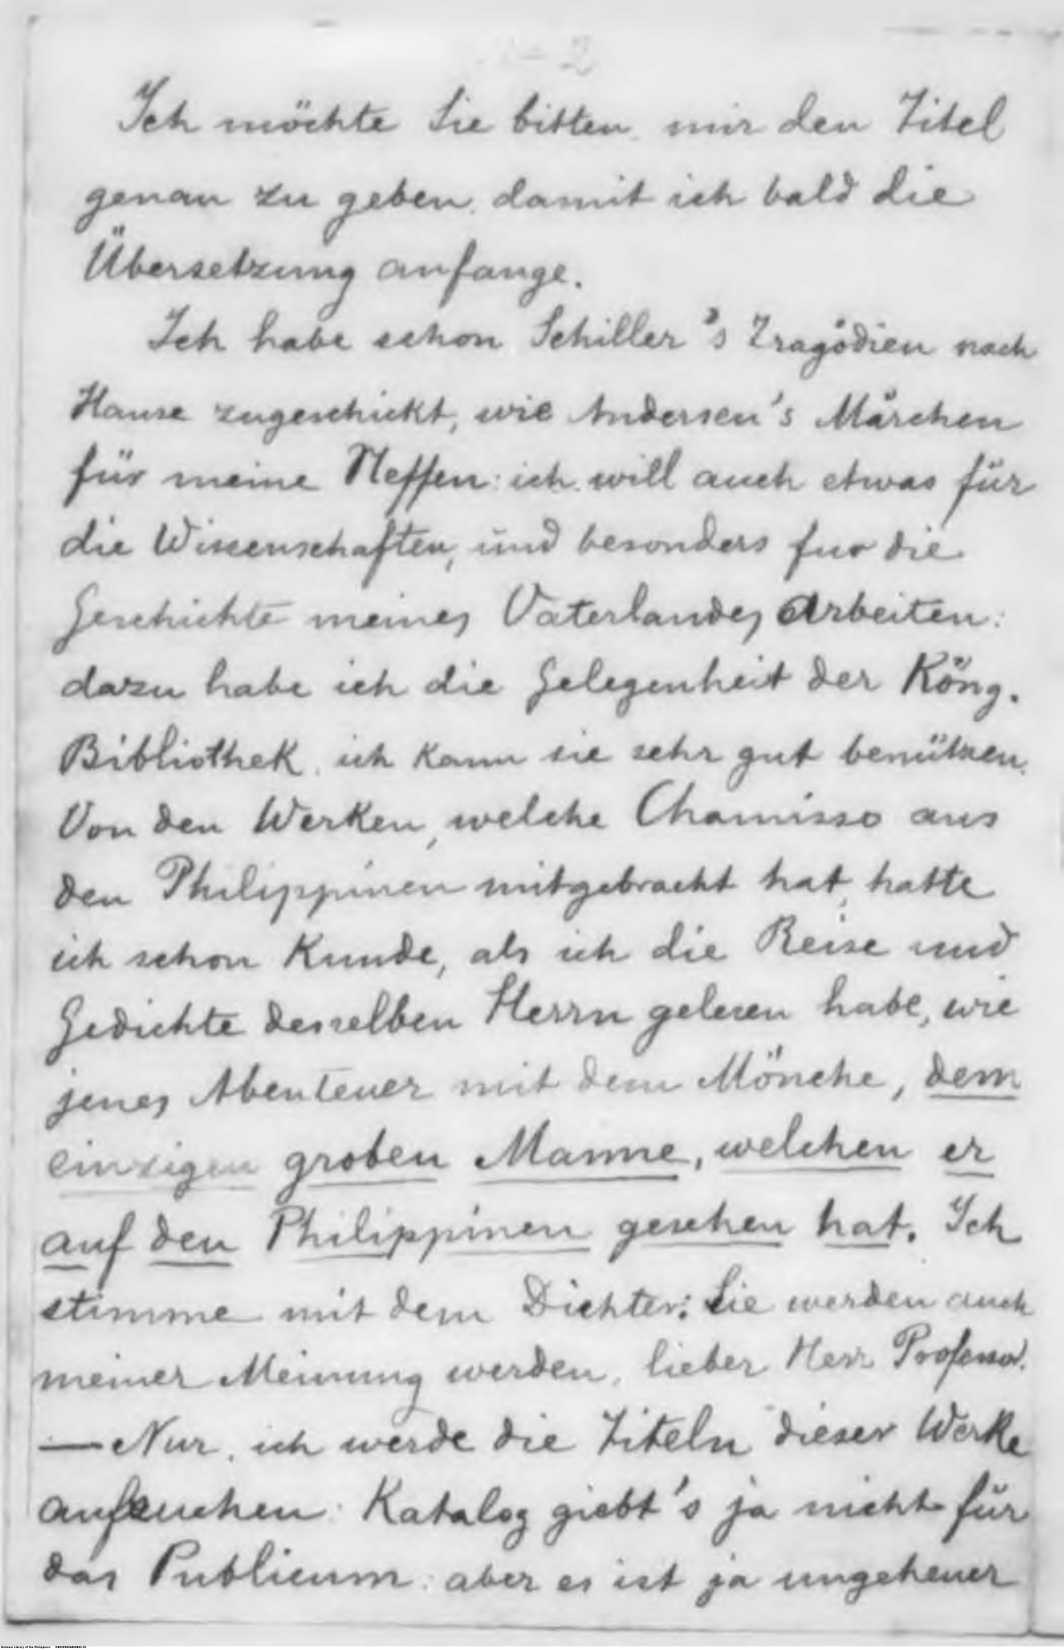 - 2
Ich möchte Sie bitten, mir den Titel
genau zu geben, damit ich bald die
Übersetzung anfange.
Ich habe schon Schiller's Tragödien nach
Hause zugeschickt, wie Andersen's Märchen
für meine Neffen: ich will auch etwas für
die Wissenschaften, und besonders fur die
Geschichte meines Vaterlandes Arbeiten:
dazu habe ich die Gelegenheit der Köng.
Bibliothek, ich kann sie sehr gut benützen.
Von den Werken, welche Chamisso aus
den Philippinen mitgebracht hat, hatte
ich schon Kunde, als ich die Reise und
Gedichte desselben Herrn gelesen habe, wie
jenes Abenteuer mit dem Mönche, dem
einzigen groben Manne, welchen er
auf den Philippinen gesehen hat. Ich
stimme mit dem Dichter: Sie werden auch
meiner Meinung werden, lieber Herr Professor.
— Nur, ich werde die Titeln dieser Werke
aufsuchen: Katalog giebt's ja nicht für
das Publicum: aber es ist ja ungeheuer